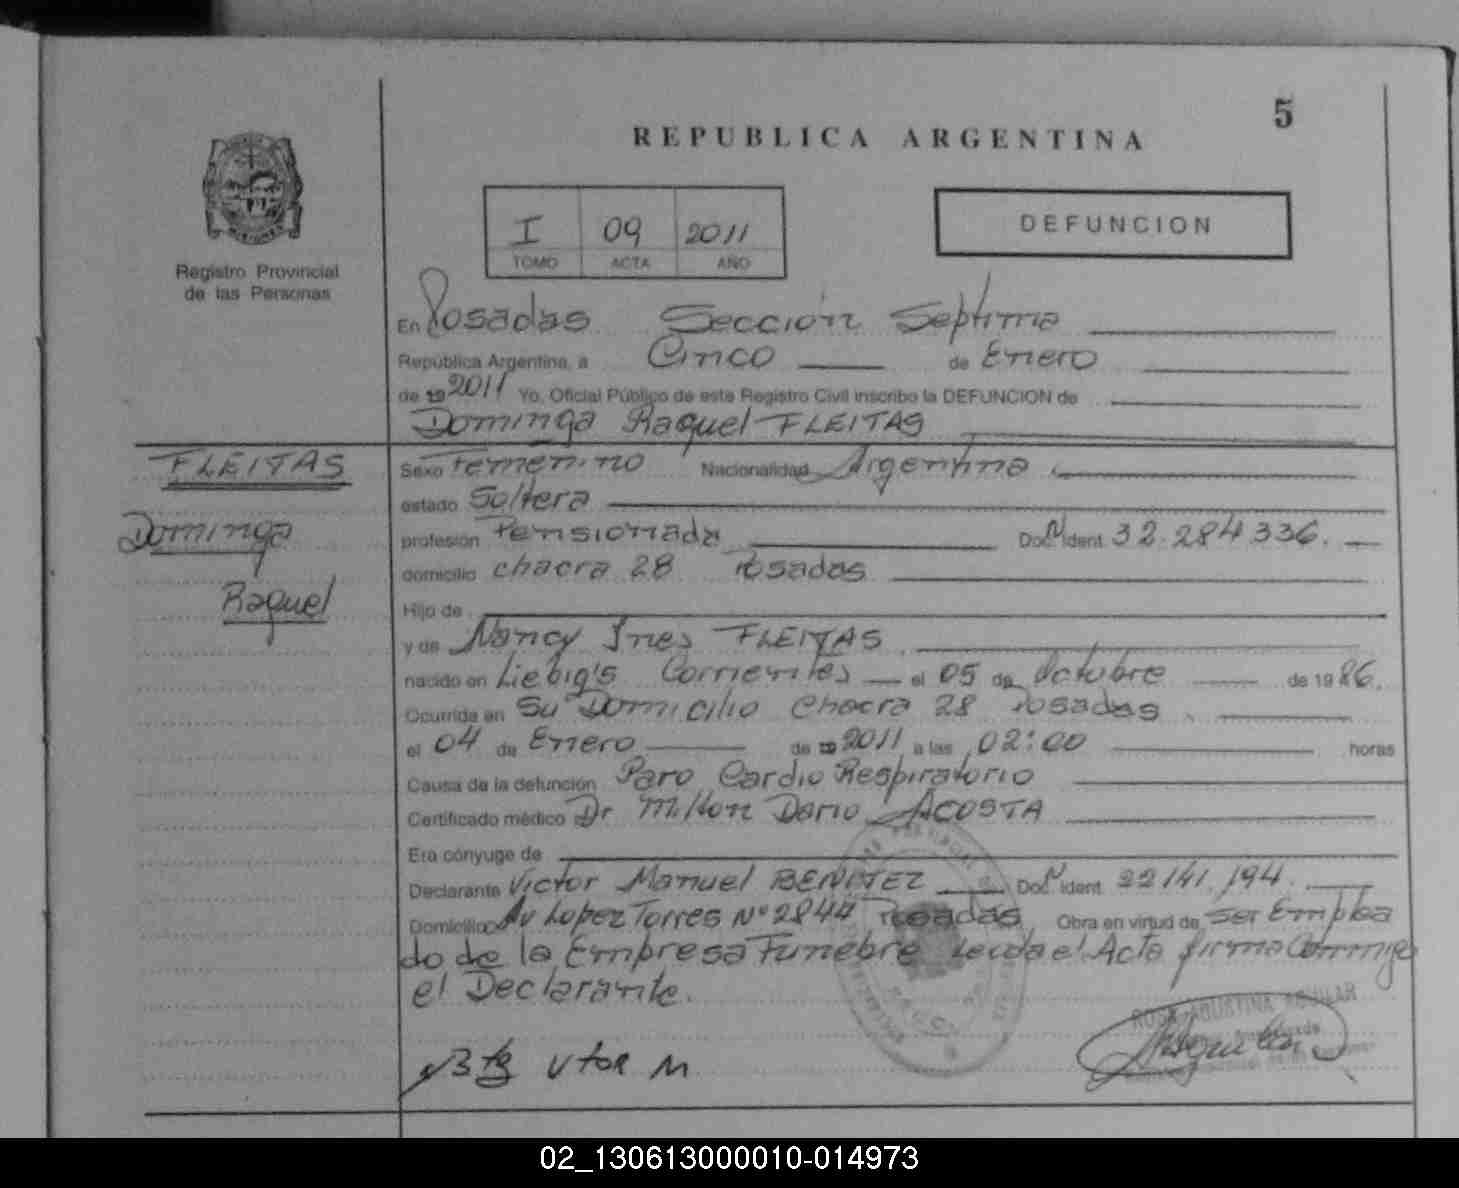 5
REPUBLICA ARGENTINA
I 09 2011
TOMO ACTA AÑO
DEFUNCION
MISIONES
Registro Provincial
de las Personas
En Posadas Sección Septima
República Argentina, a Cinco de Enero
de 19 2011 Yo, Oficial Público de este Registro Civil inscribo la DEFUNCION de
Dominga Raquel FLEITAS
FLEITAS
Dominga
Raquel
Sexo Femenino Nacionalidad Argentina
estado Soltera
profesión Pensionada Doc. Ident. 32.284336.
domicilio chacra 28 Posadas
Hijo de
y de Nancy Ines FLEITAS
nacido en Liebig's Corrientes el 05 de Octubre de 1986.
Ocurrida en Su Domicilio Chacra 28 Posadas
el 04 de Enero de 19 2011 a las 02:00 horas
Causa de la defunción Paro Cardio Respiratorio
Certificado médico Dr Milton Dario ACOSTA
Era cónyuge de
Declarante Victor Manuel BENITEZ Doc. Ident. 22141.194.
Domicilio Av Lopez Torres Nº 2844 Posadas Obra en virtud de ser Emplea
do de la Empresa Funebre Leida el Acta firma Conmigo
el Declarante.
ROSA AGUSTINA AGUILAR
02_130613000010-014973